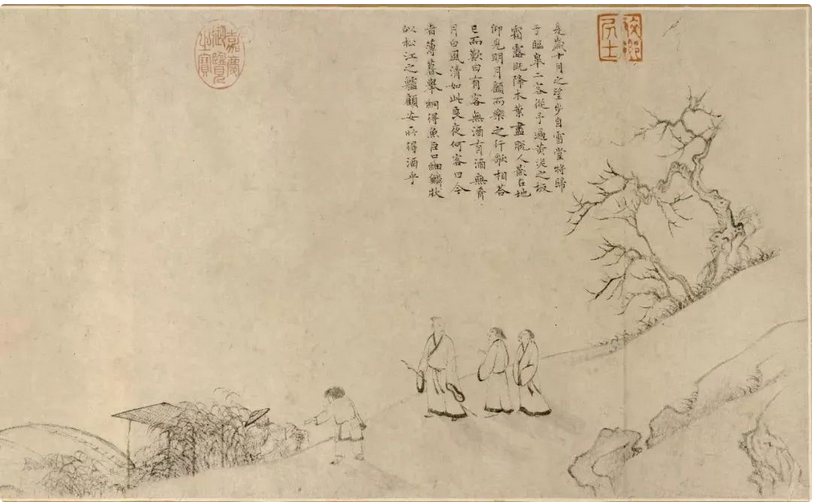 是歲十月之望步自雪堂將歸
于臨皋二客從予過黃泥之坂
霜露既降木葉盡脫人景在地
仰見明月顧而樂之行歌相答
已而歎曰有客無酒有酒無肴
月白風清如此良夜何客曰今
者薄暮舉網得魚巨口細鱗狀
似松江之鱸顧安所得酒乎
嘉慶御覽之寶